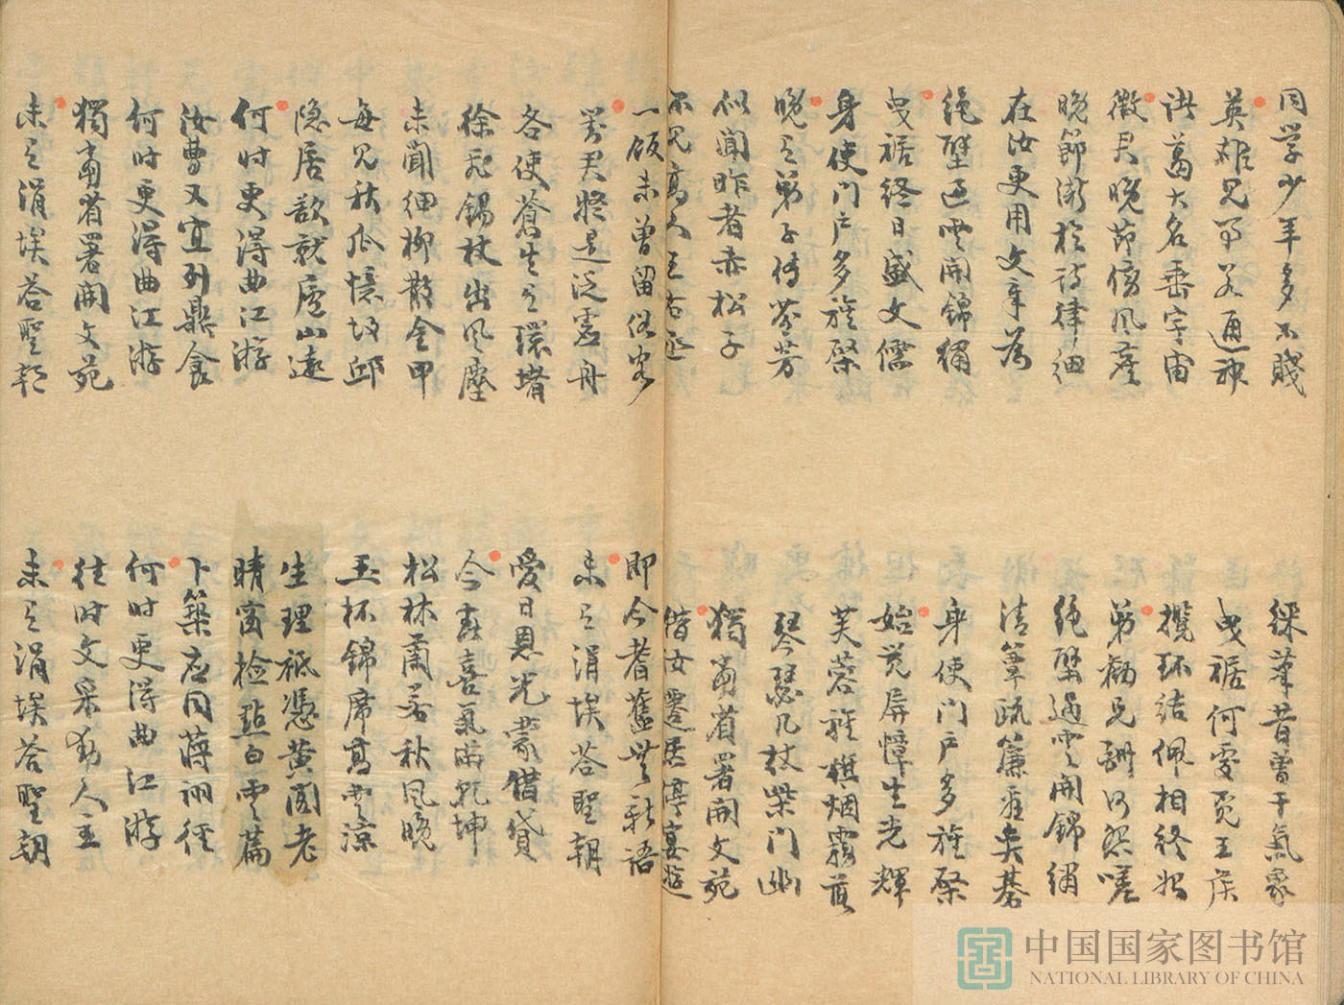 同学少年多不賤
綵筆昔曾干氣象
英雄見事若通神
曳裾何處覓王侯
諸葛大名垂宇宙
攬環結佩相終始
徵君晚節傍風塵
弟勸兄酬何怨嗟
晚節漸於詩律細
絕壁過雲開錦繡
在汝更用文章為
清簟疏簾看弈碁
絕壁過雲開錦繡
身使門戶多旌棨
曳裾終日盛文儒
始覺屏幛生光輝
身使門戶多旌棨
芙蓉旌旗烟霧落
晚有弟子傳芬芳
琴瑟几杖柴門幽
似聞昨者赤松子
獨當省署開文苑
不見高人王右丞
借汝遷居停宴遊
一飯未曾留俗客
即今耆舊無新語
對君疑是泛虛舟
未有涓埃答聖朝
各使蒼生有環堵
愛日恩光蒙借貸
徐飛錫杖出風塵
今春喜氣滿乾坤
未聞細柳散金甲
松林蘭若秋風晚
每見秋瓜憶故邱
玉杯錦席高雲涼
隱居欲就廬山遠
生理祗憑黃閣老
何时更得曲江游
晴窗檢點白雲篇
汝曹又宜列鼎食
卜築应同蔣詡徑
何时更得曲江游
何时更得曲江游
獨當省署開文苑
往时文采動人主
未有涓埃答聖朝
未有涓埃答聖朝
中国国家图书馆
NATIONAL LIBRARY OF CHINA